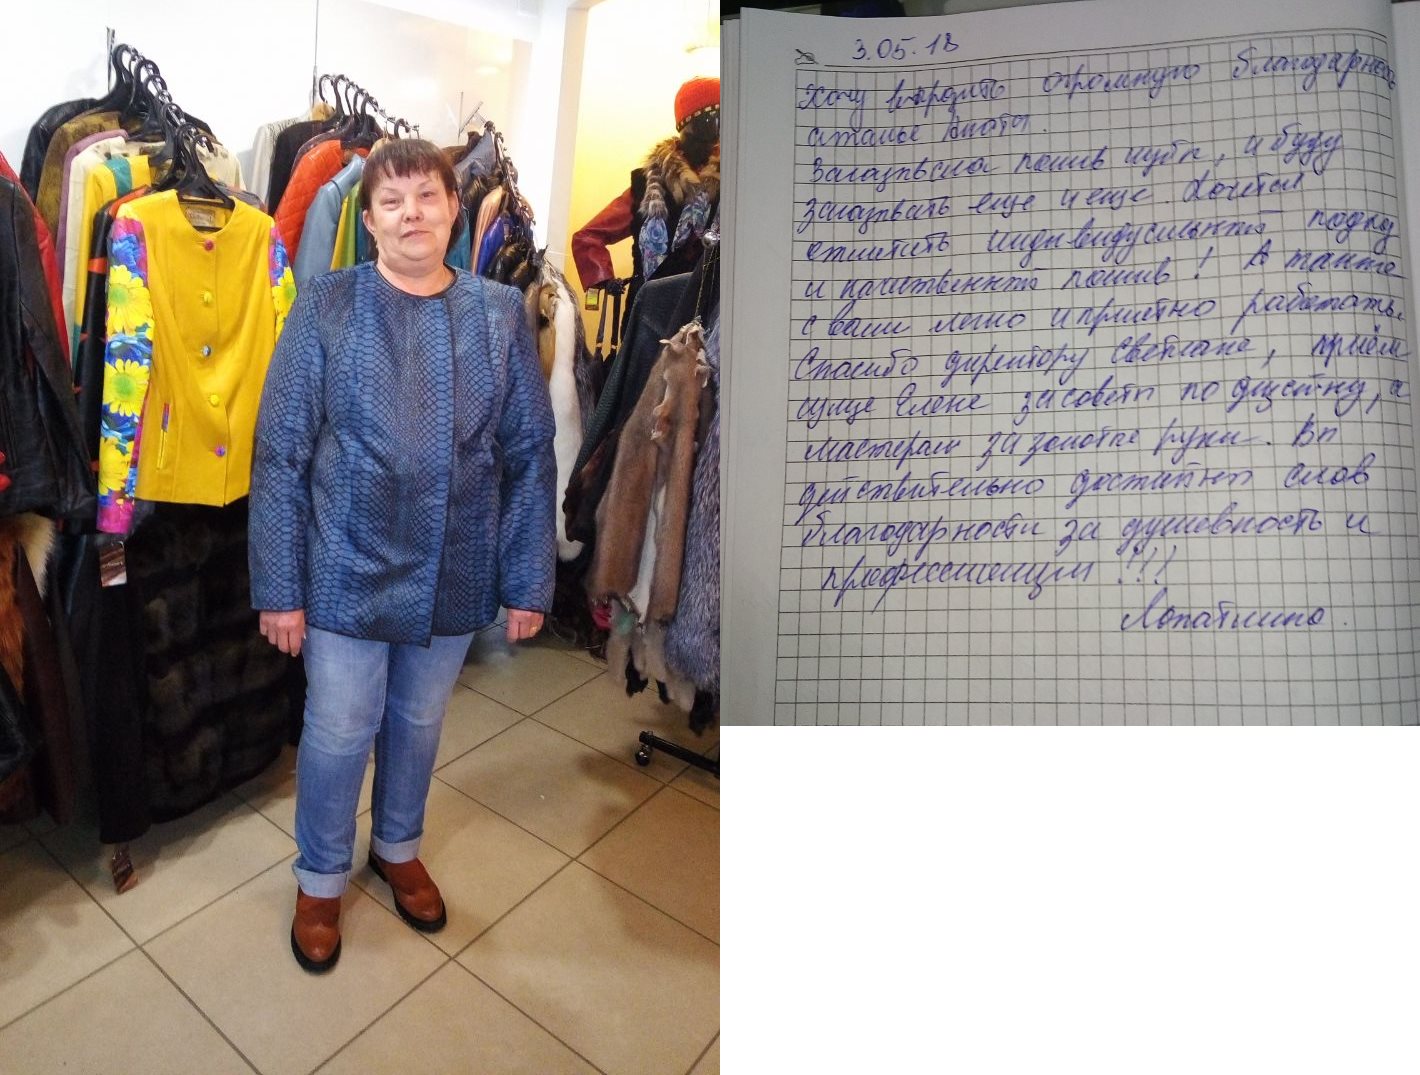 3.05.18
Хочу выразить огромную благодарность
ателье
Заказывала пошив шубы, и буду
заказывать еще и еще. Хочется
отметить индивидуальный подход
и качественный пошив! А также
с вами легко и приятно работать.
Спасибо директору Светлане, приём
щице Елене за советы по дизайну, а
мастерам за золотые руки. Вы
действительно достойны слов
благодарности за душевность и
профессионализм !!!
Лопаткина.